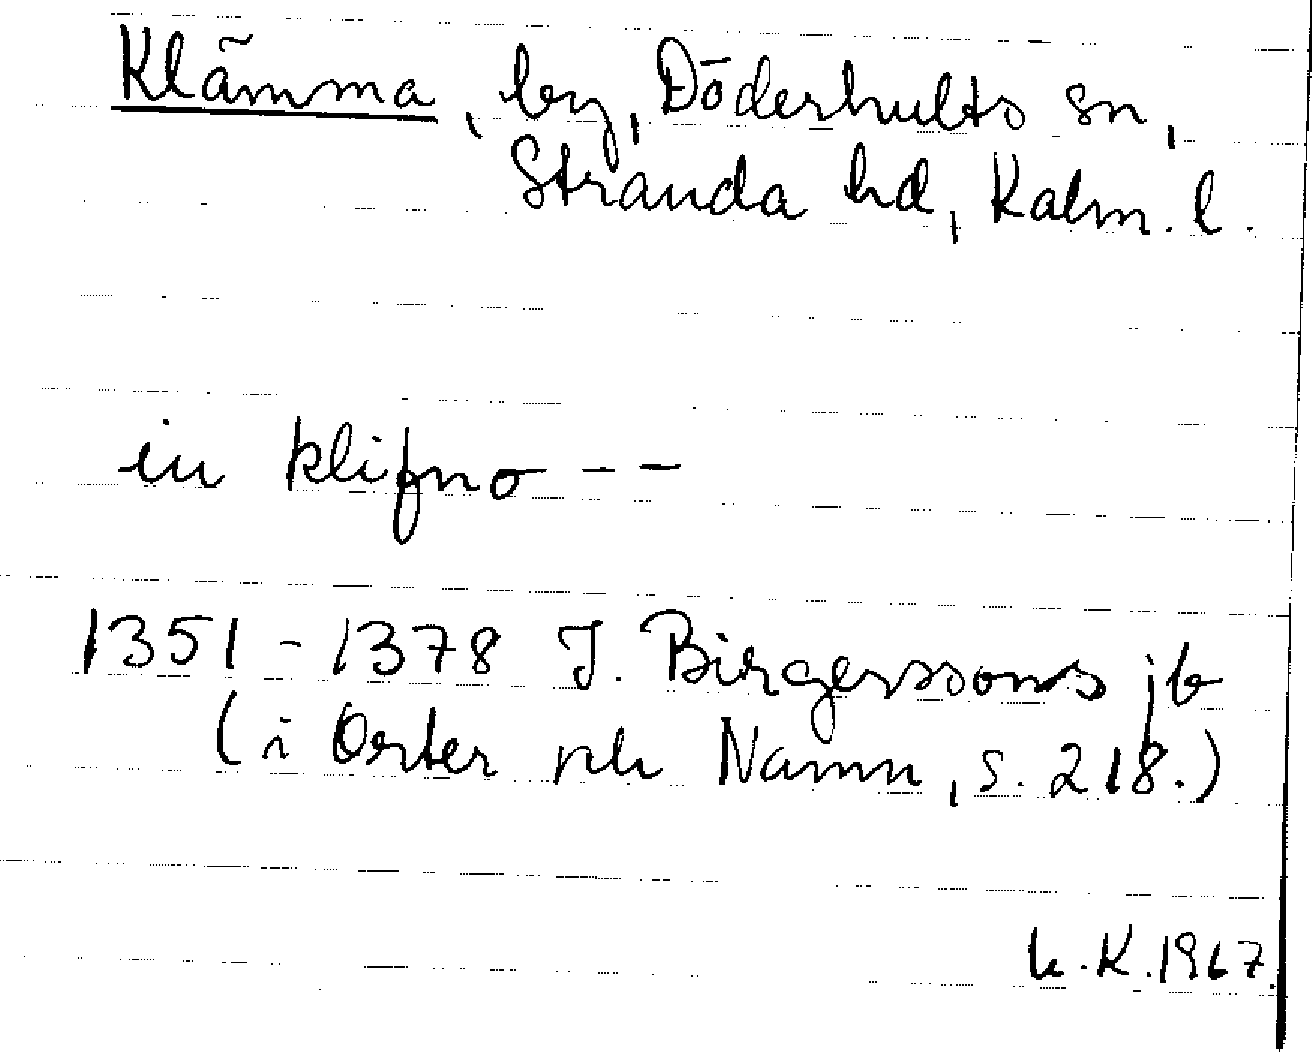 Klämma, by, Döderhults sn,
Stranda hd, Kalm. l.
in klifno - -
1351 - 1378 J. Birgerssons jb
(i Orter och Namn, s. 218.)
K. 1967.